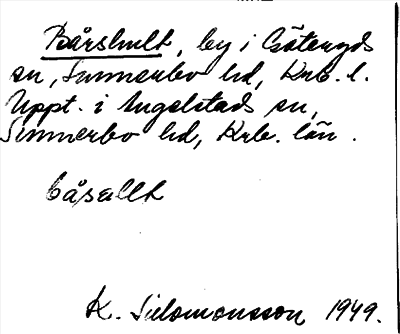 Bårshult, by i Göteryds
sn, Sunnerbo hd, Krb. l.
Uppt. i Angelstads sn,
Sunnerbo hd, Krb. län.
båsællt
K. Salomonsson 1949.